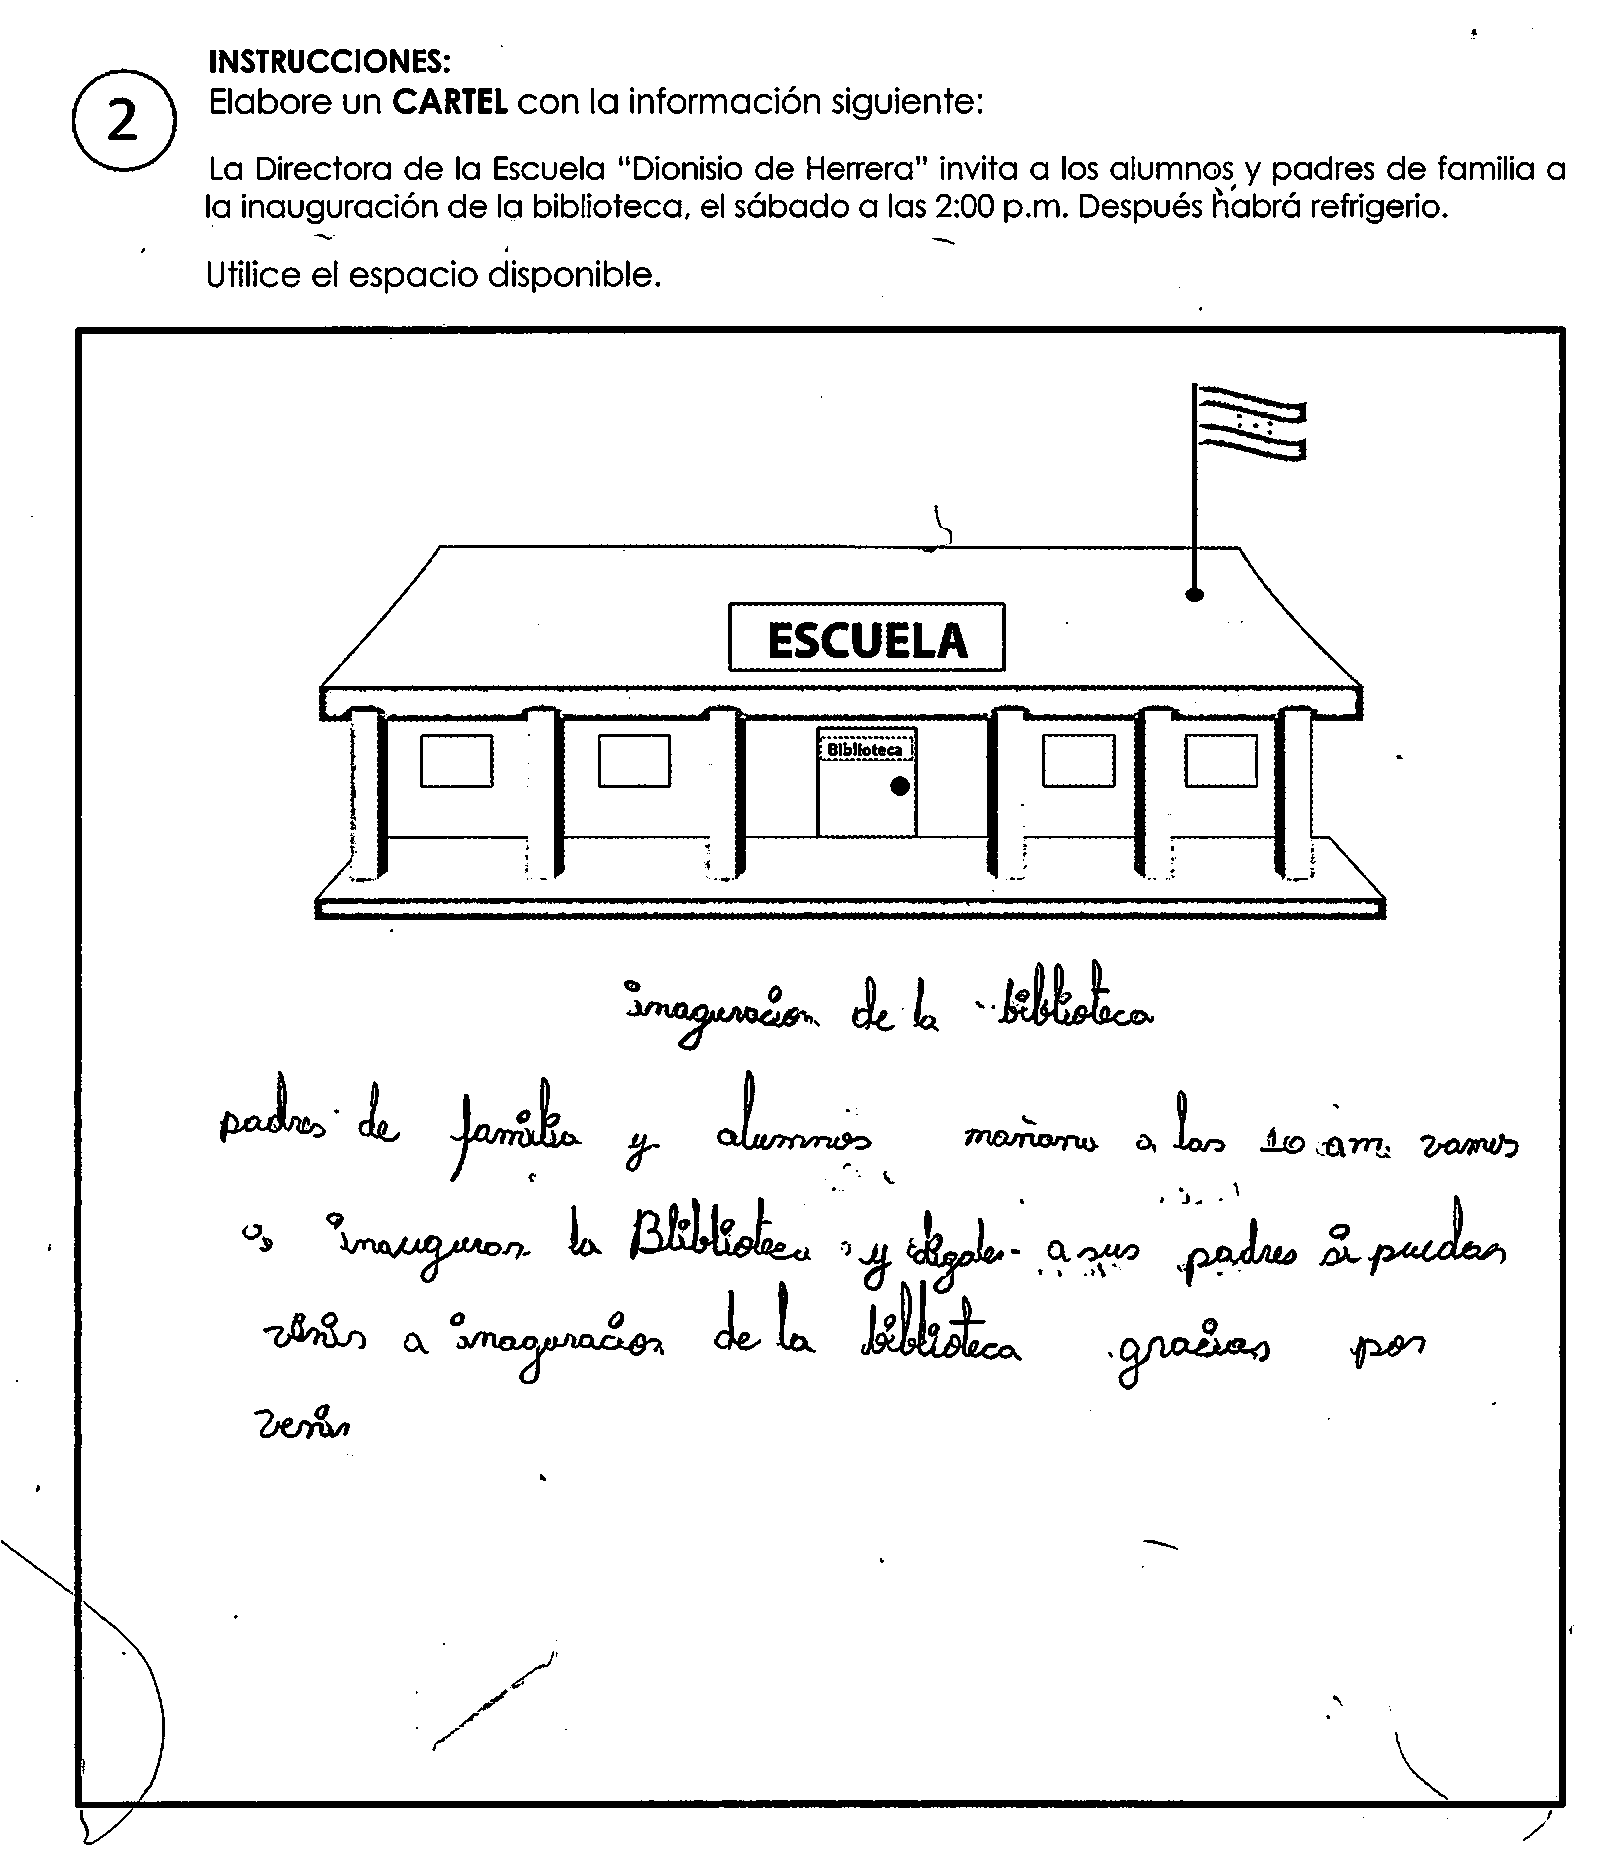 INSTRUCCIONES:
2
Elabore un CARTEL con la información siguiente:
La Directora de la Escuela “Dionisio de Herrera” invita a los alumnos y padres de familia a
la inauguración de la biblioteca, el sábado a las 2:00 p.m. Después habrá refrigerio.
Utilice el espacio disponible.
ESCUELA
Biblioteca
inaguracion de la biblioteca
padres de familia y alumnos mañana a las 10 am. vamos
a inaugurar la Bliblioteca y digale a sus padres si pueden
venir a inaguracion de la biblioteca gracias por
venir